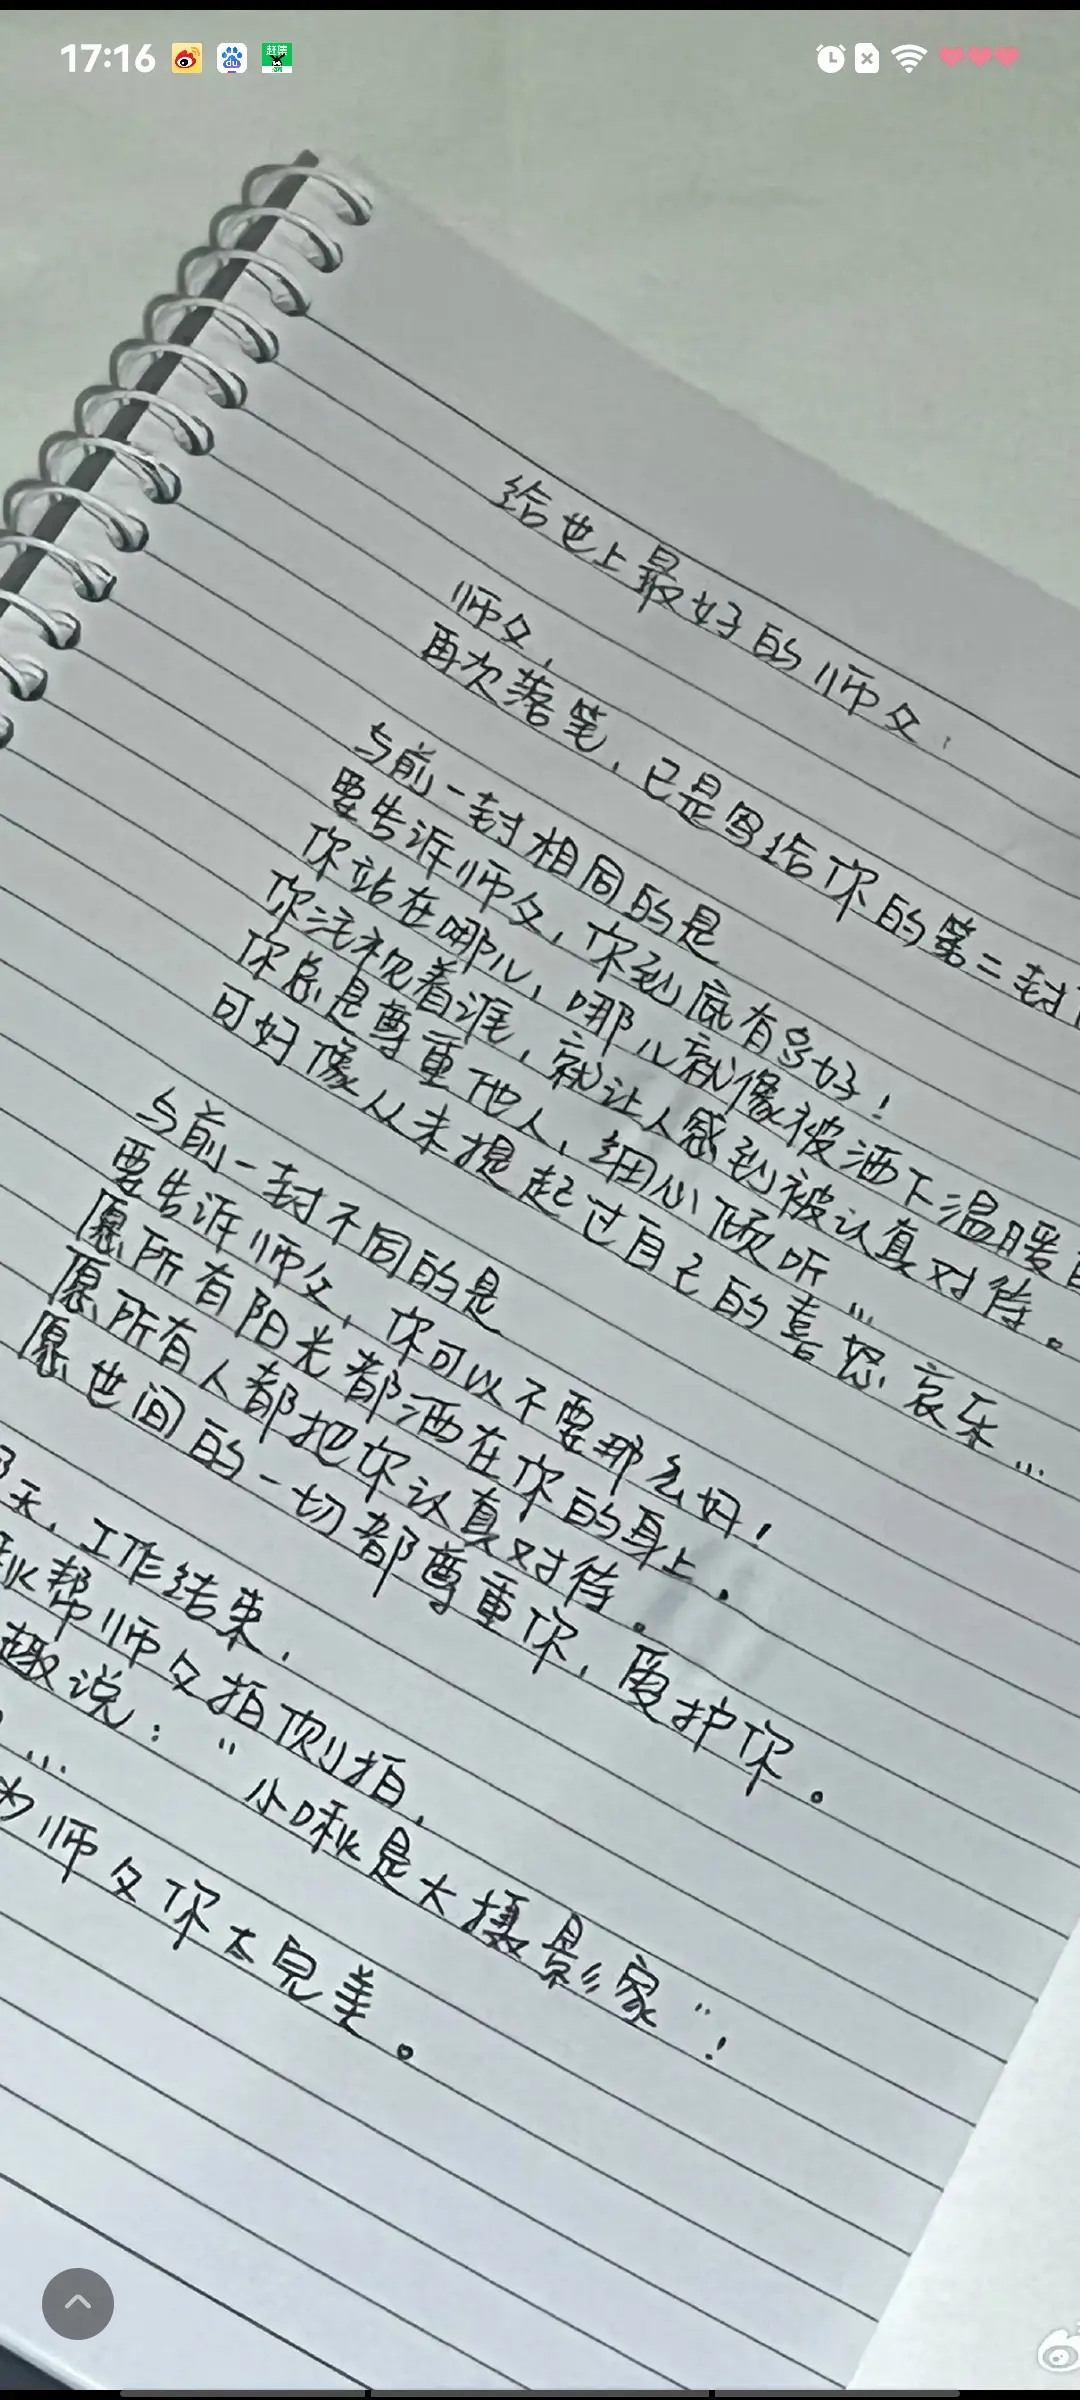 17:16
给世上最好的师父，
师父，
再次落笔，已是写给你的第二封
与前一封相同的是
要告诉师父，你到底有多好！
你站在哪儿，哪儿就像被洒下温暖
你注视着谁，就让人感到被认真对待。
你总是尊重他人，细心倾听...
可好像从未提起过自己的喜怒哀乐...
与前一封不同的是
要告诉师父，你可以不要那么好！
愿所有阳光都洒在你的身上，
愿所有人都把你认真对待，
愿世间的一切都尊重你，爱护你。
天，工作结束，
啾帮师父拍侧拍，
趣说："小啾是大摄影家"！
...
为师父你太完美。